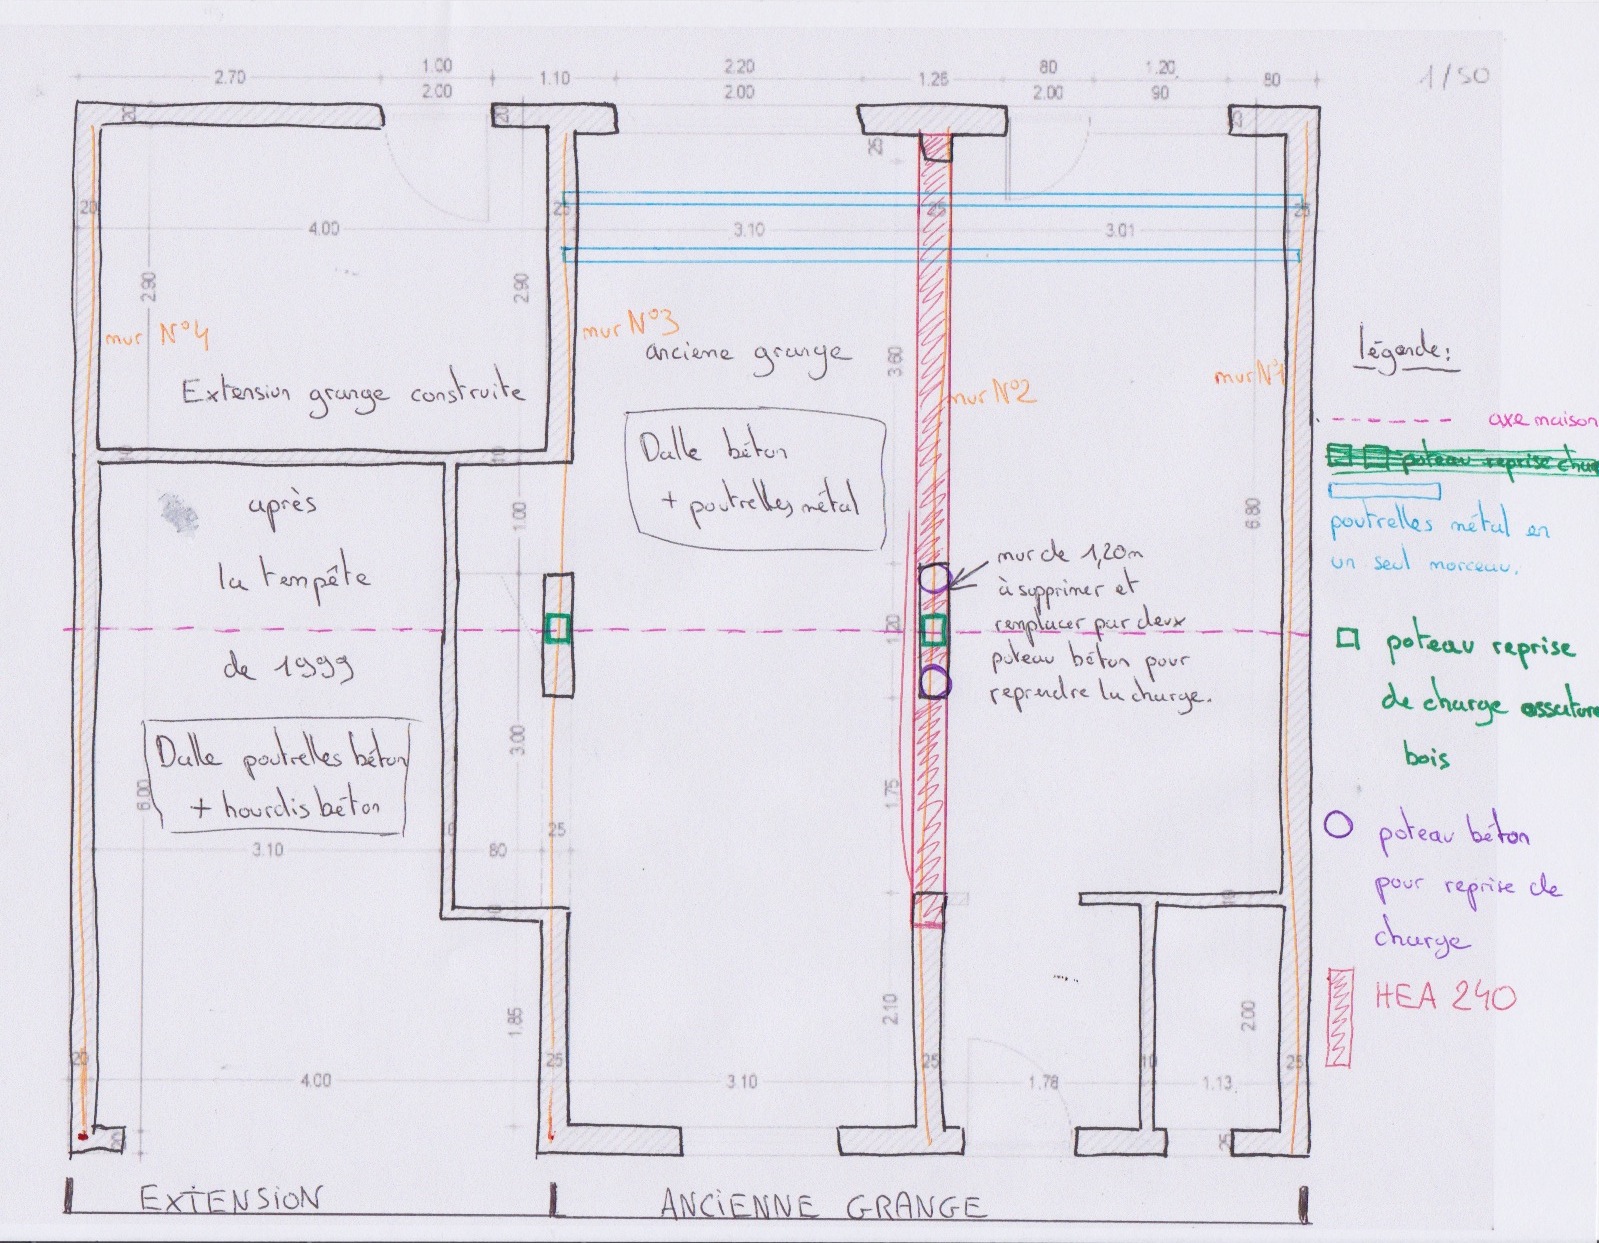 2.70
1.00
2.00
1.10
2.20
2.00
1.25
80
2.00
1.20
90
80
1/50
20
20
25
25
20
25
4.00
25
3.10
25
3.01
25
2.90
2.90
mur N°4
mur N°3
anciene grange
3.60
mur N°2
mur N°1
Extension grange construite
10
10
après
la tempête
de 1999
Dalle béton
+ poutrelles métal
1.00
6.80
mur de 1,20m
à supprimer et
remplacer par deux
poteau béton pour
reprendre la charge.
1.20
Dalle poutrelles béton
+ hourdis béton
6.00
3.00
1.75
3.10
80
25
10
1.85
2.10
2.00
20
4.00
25
3.10
25
1.78
10
1.13
25
20
25
EXTENSION
ANCIENNE GRANGE
légende:
axe maison
poteau reprise
poutrelles métal en
un seul morceau.
poteau reprise
de charge ossature
bois
poteau béton
pour reprise de
charge
HEA 240